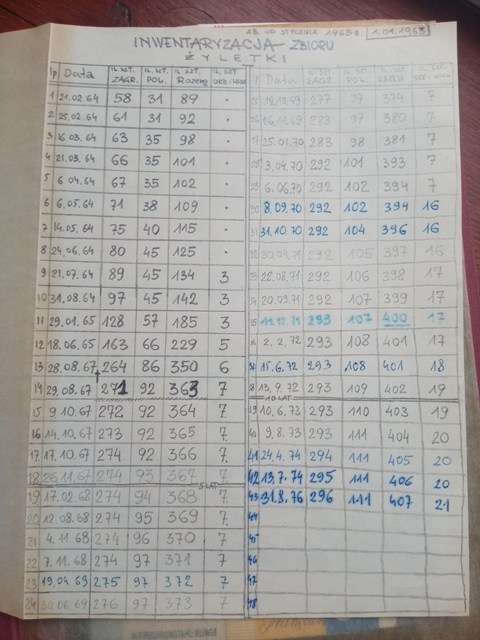 ZB. OD STYCZNIA 1963 r. 1.01.1963
INWENTARYZACJA ZBIORU
ŻYLETKI
lp Data IL. SZT. ZAGR. IL. SZT. POL. IL. SZT. RAZEM IL. SZT.
1 21.02.64 58 31 89 .
2 25.02.64 61 31 92 .
3 16.03.64 63 35 98 .
4 21.03.64 66 35 101 .
5 6.04.64 67 35 102 .
6 6.05.64 71 38 109 .
7 14.05.64 75 40 115 .
8 24.06.64 80 45 125 .
9 21.07.64 89 45 134 3
10 31.08.64 97 45 142 3
11 29.01.65 128 57 185 3
12 18.06.65 163 66 229 5
13 28.08.67 264 86 350 6
14 29.08.67 271 92 363 7
15 9.10.67 272 92 364 7
16 14.10.67 273 92 365 7.
17 17.10.67 274 92 366 7.
18 26.11.67 274 93 367 7
5 LAT
19 17.02.68 274 94 368 7
20 12.08.68 274 95 369 7.
21 4.11.68 274 96 370 7.
22 7.11.68 274 97 371 7
23 19.04.69 275 97 372 7
24 30.06.69 276 97 373 7
lp Data IL. SZT. ZAGR. IL. SZT. POL. IL. SZT. RAZEM IL. SZT.
25 277 97 374 7
26 283 97 380 7
27 25.01.70 283 98 381 7
28 3.04.70 292 101 393 7
29 6.06.70 292 102 394 7
30 8.09.70 292 102 394 16
31 31.10.70 292 104 396 16
32 292 105 397 16
33 22.08.71 292 106 398 17
34 20.09.71 292 107 399 17
35 11.12.71 293 107 400 17
2.2.72 293 108 401 17
15.6.72 293 108 401 18
38 13.9.72 293 109 402 19
10 LAT
39 10.6.73 293 110 403 19
40 9.8.73 293 111 404 20
41 24.4.74 294 111 405 20
42 13.7.74 295 111 406 20
43 31.8.76 296 111 407 21
44
45
46
47
48